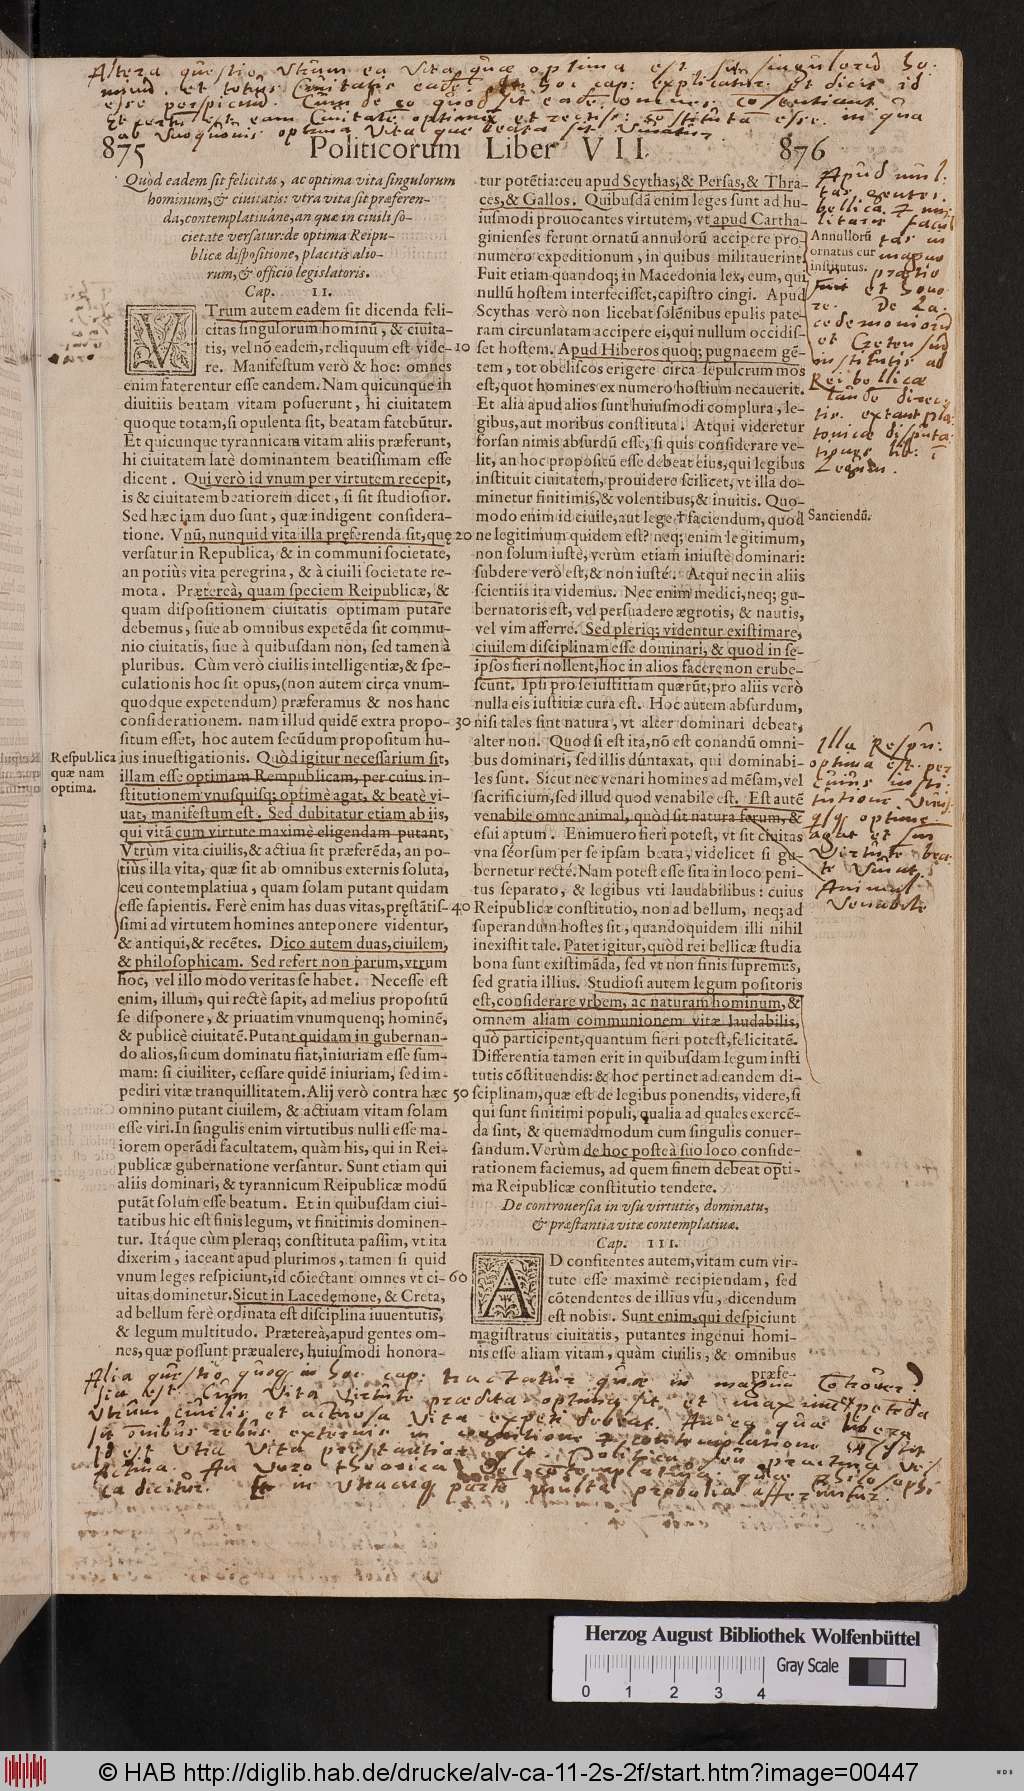 Altera quæstio Utrum ea vita quæ optima est sit singulorum ho:
minum et totius Civitatis eadem in hoc cap: explicatur. Et dicit id
esse perspicuum. Cum de eo quod sit eadem omnes consentiant.
eam Civitatem optimam et rectiss: constitutam esse. in qua
ab unoquovis optima vita que beata sit
875 Politicorum Liber VII. 876
Quòd eadem sit felicitas, ac optima vita singulorum
hominum, & ciuitatis: vtra vita sit præferen-
da, contemplatiuáne, an quæ in ciuili so-
cietate versatur: de optima Reipu-
blicæ dispositione, placitis alio-
rum, & officio legislatoris.
Cap. II.
VTrum autem eadem sit dicenda feli-
citas singulorum hominũ, & ciuita-
tis, vel nõ eadem, reliquum est vide-
re. Manifestum verò & hoc: omnes
enim faterentur esse eandem. Nam quicunque in
diuitiis beatam vitam posuerunt, hi ciuitatem
quoque totam, si opulenta sit, beatam fatebũtur.
Et quicunque tyrannicam vitam aliis præferunt,
hi ciuitatem latè dominantem beatissimam esse
dicent. Qui verò id vnum per virtutem recepit,
is & ciuitatem beatiorem dicet, si sit studiosior.
Sed hæc iam duo sunt, quæ indigent considera-
tione. Vnũ, nunquid vita illa pręferenda sit, quę
versatur in Republica, & in communi societate,
an potiùs vita peregrina, & à ciuili societate re-
mota. Prætereà, quam speciem Reipublicæ, &
quam dispositionem ciuitatis optimam putare
debemus, siue ab omnibus expetẽda sit commu-
nio ciuitatis, siue à quibusdam non, sed tamen à
pluribus. Cùm verò ciuilis intelligentiæ, & spe-
culationis hoc sit opus, (non autem circa vnum-
quodque expetendum) præferamus & nos hanc
considerationem. nam illud quidẽ extra propo-
situm esset, hoc autem secũdum propositum hu-
ius inuestigationis. Quòd igitur necessarium sit,
illam esse optimam Rempublicam, per cuius in-
stitutionem vnusquisq; optimè agat, & beatè vi-
uat, manifestum est. Sed dubitatur etiam ab iis,
qui vitã cum virtute maximè eligendam putant,
Vtrùm vita ciuilis, & actiua sit præferẽda, an po-
tiùs illa vita, quæ sit ab omnibus externis soluta,
ceu contemplatiua, quam solam putant quidam
esse sapientis. Ferè enim has duas vitas, pręstãtis-
simi ad virtutem homines anteponere videntur,
& antiqui, & recẽtes. Dico autem duas, ciuilem,
& philosophicam. Sed refert non parum, vtrum
hoc, vel illo modo veritas se habet. Necesse est
enim, illum, qui rectè sapit, ad melius propositũ
se disponere, & priuatim vnumquenq; hominẽ,
& publicè ciuitatẽ. Putant quidam in gubernan-
do alios, si cum dominatu fiat, iniuriam esse sum-
mam: si ciuiliter, cessare quidẽ iniuriam, sed im-
pediri vitæ tranquillitatem. Alij verò contra hæc
omnino putant ciuilem, & actiuam vitam solam
esse viri. In singulis enim virtutibus nulli esse ma-
iorem operãdi facultatem, quàm his, qui in Rei-
publicæ gubernatione versantur. Sunt etiam qui
aliis dominari, & tyrannicum Reipublicæ modũ
putãt solum esse beatum. Et in quibusdam ciui-
tatibus hic est finis legum, vt finitimis dominen-
tur. Itáque cùm pleraq; constituta passim, vt ita
dixerim, iaceant apud plurimos, tamen si quid
vnum leges respiciunt, id cõiectant omnes vt ci-
uitas dominetur. Sicut in Lacedęmone, & Creta,
ad bellum ferè ordinata est disciplina iuuentutis,
& legum multitudo. Prætereà, apud gentes om-
nes, quæ possunt præualere, huiusmodi honora-
Respublica
quæ nam
optima.
10
20
30
40
50
60
tur potẽtia: ceu apud Scythas, & Persas, & Thra-
ces, & Gallos. Quibusdã enim leges sunt ad hu-
iusmodi prouocantes virtutem, vt apud Cartha-
ginienses ferunt ornatũ annulorũ accipere pro
numero expeditionum, in quibus militauerint.
Fuit etiam quandoq; in Macedonia lex, eum, qui
nullũ hostem interfecisset, capistro cingi. Apud
Scythas verò non licebat solẽnibus epulis pate-
ram circunlatam accipere ei, qui nullum occidis-
set hostem. Apud Hiberos quoq; pugnacem gẽ-
tem, tot obeliscos erigere circa sepulcrum mos
est, quot homines ex numero hostium necauerit.
Et alia apud alios sunt huiusmodi complura, le-
gibus, aut moribus constituta. Atqui videretur
forsan nimis absurdũ esse, si quis considerare ve-
lit, an hoc propositũ esse debeat eius, qui legibus
instituit ciuitatem, prouidere scilicet, vt illa do-
minetur finitimis, & volentibus, & inuitis. Quo-
modo enim id ciuile, aut lege † faciendum, quod
ne legitimum quidem est? neq; enim legitimum,
non solum iustè, verùm etiam iniustè dominari:
subdere verò est, & non iustè. Atqui nec in aliis
scientiis ita videmus. Nec enim medici, neq; gu-
bernatoris est, vel persuadere ægrotis, & nautis,
vel vim afferre. Sed pleriq; videntur existimare,
ciuilem disciplinam esse dominari, & quod in se-
ipsos fieri nollent, hoc in alios facere non erube-
scunt. Ipsi pro se iustitiam quærũt, pro aliis verò
nulla eis iustitiæ cura est. Hoc autem absurdum,
nisi tales sint natura, vt alter dominari debeat,
alter non. Quod si est ita, nõ est conandũ omni-
bus dominari, sed illis dũntaxat, qui dominabi-
les sunt. Sicut nec venari homines ad mẽsam, vel
sacrificium, sed illud quod venabile est. Est autẽ
venabile omne animal, quòd sit natura ferum, &
esui aptum. Enimuero fieri potest, vt sit ciuitas
vna séorsum per se ipsam beata, videlicet si gu-
bernetur rectè. Nam potest esse sita in loco peni-
tus separato, & legibus vti laudabilibus: cuius
Reipublicæ constitutio, non ad bellum, neq; ad
superandum hostes sit, quandoquidem illi nihil
inexistit tale. Patet igitur, quòd rei bellicæ studia
bona sunt existimãda, sed vt non finis supremus,
sed gratia illius. Studiosi autem legum positoris
est, considerare vrbem, ac naturam hominum, &
omnem aliam communionem vitæ laudabilis,
quò participent, quantum fieri potest, felicitatẽ.
Differentia tamen erit in quibusdam legum insti
tutis cõstituendis: & hoc pertinet ad eandem di-
sciplinam, quæ est de legibus ponendis, videre, si
qui sunt finitimi populi, qualia ad quales exercẽ-
da sint, & quemadmodum cum singulis conuer-
sandum. Verùm de hoc posteà suo loco conside-
rationem faciemus, ad quem finem debeat opti-
ma Reipublicæ constitutio tendere.
De controuersia in vsu virtutis, dominatu,
& præstantia vitæ contemplatiuæ.
Cap. III.
AD confitentes autem, vitam cum vir-
tute esse maximè recipiendam, sed
cõtendentes de illius vsu, dicendum
est nobis. Sunt enim, qui despiciunt
magistratus ciuitatis, putantes ingenui homi-
nis esse aliam vitam, quàm ciuilis, & omnibus
præfe-
Apud mul:
tas gentes
bellica et mi:
litaris facul
tas in
magno
pretio
fuit et hono
re. De La:
cedemoniorũ
et Cretensiũ
institutis ad
Rei bellicæ
laudẽ direc:
tis. extant pla:
tonicæ disputa:
tiones lib: 1
Legum.
Annullorũ
ornatus cur
institutus.
Sanciendũ.
Illa Respu:
optima est. per
cuius insti:
tutionẽ. Unus
qsq optime.
agat et sui
Virtute bea
te vivat
Animal
Venabile
Alia quæstio quoq in hoc cap: tractatur quæ in magna Cõtrover:
sia est. Cum vita virtute prædita optima sit, et maxime expetẽda
Utrum civilis et actuosa vita expeti debeat. An ea quæ libera
sit omibus rebus externis in cognitione et contemplatione
Id est Utra vita præstantior sit. Politica, seu practica vel
Activa. An vero theorica vel cõtemplativa. quæ Philosophi
ca dicitur. Et in utramq partẽ multa probabilia afferuntur.
Herzog August Bibliothek Wolfenbüttel
Gray Scale
0 1 2 3 4
© HAB http://diglib.hab.de/drucke/alv-ca-11-2s-2f/start.htm?image=00447